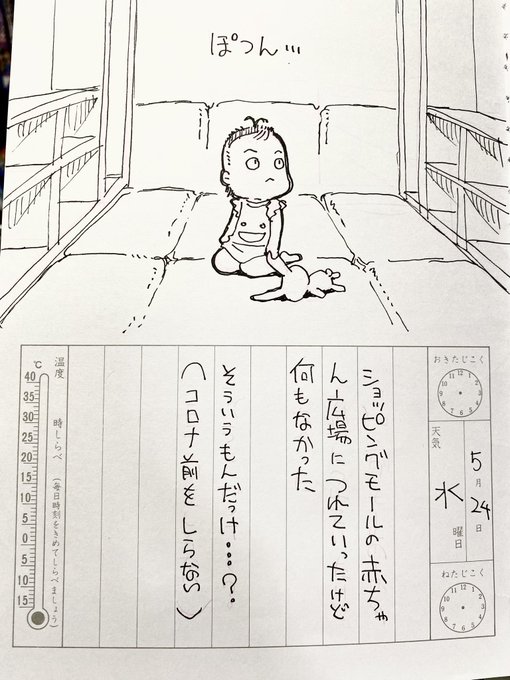 ぽつん…
おきたじこく
12 1 2 3 4 5 6 7 8 9 10 11
天気
5月24日
水曜日
ねたじこく
12 1 2 3 4 5 6 7 8 9 10 11
ショッピングモールの赤ちゃ
ん広場につれていったけど
何もなかった
そういうもんだっけ…?
(コロナ前をしらない)
温度
時しらべ(毎日時刻をきめてしらべましょう)
℃
40
35
30
25
20
15
10
5
0
5
10
15